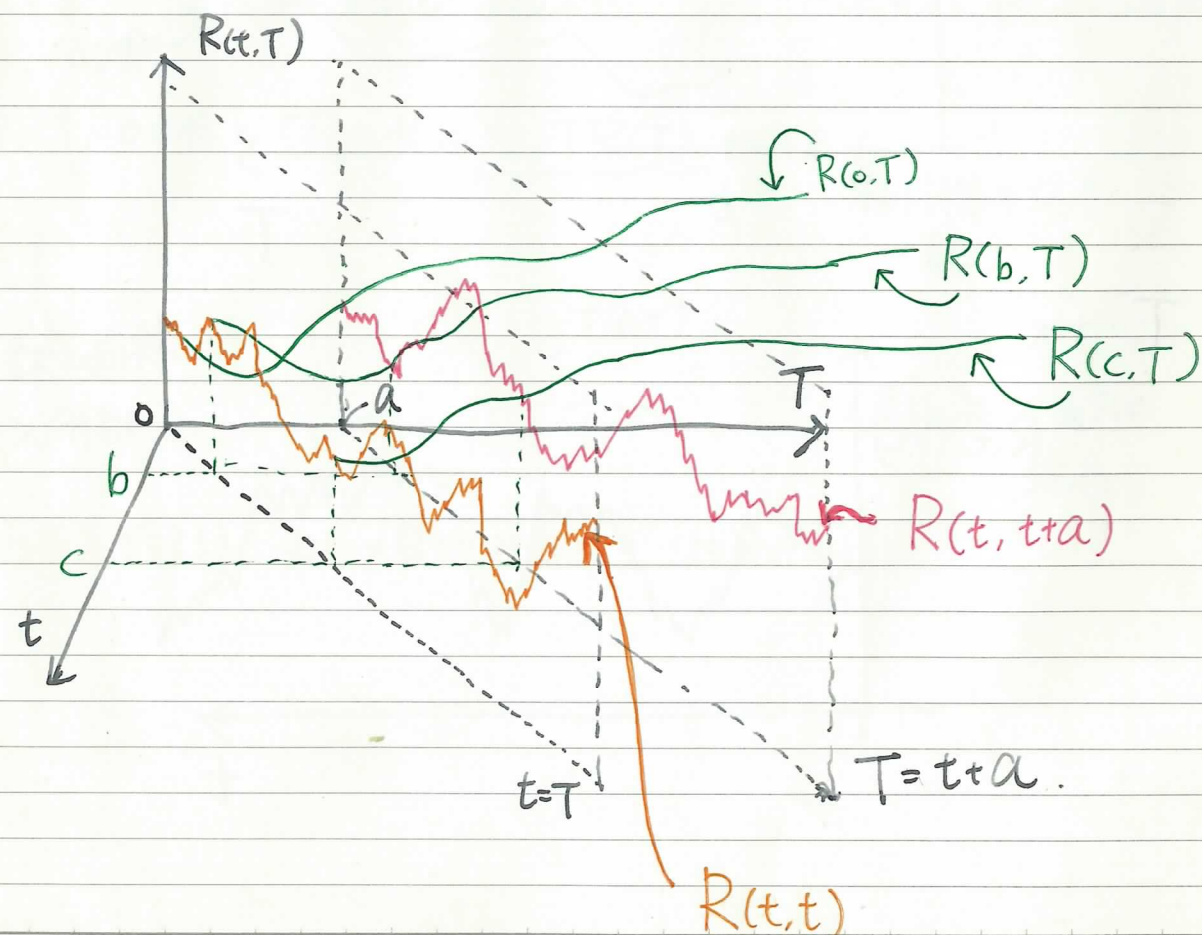 R(t,T)
R(0,T)
R(b,T)
R(c,T)
T
a
0
b
c
t
R(t, t+a)
t=T
T=t+a.
R(t,t)